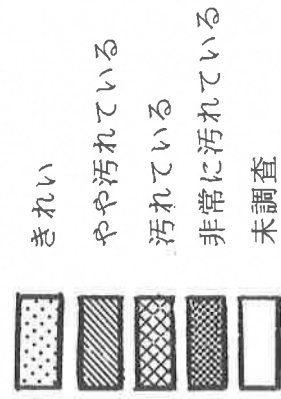 きれい
やや汚れている
汚れている
非常に汚れている
未調査